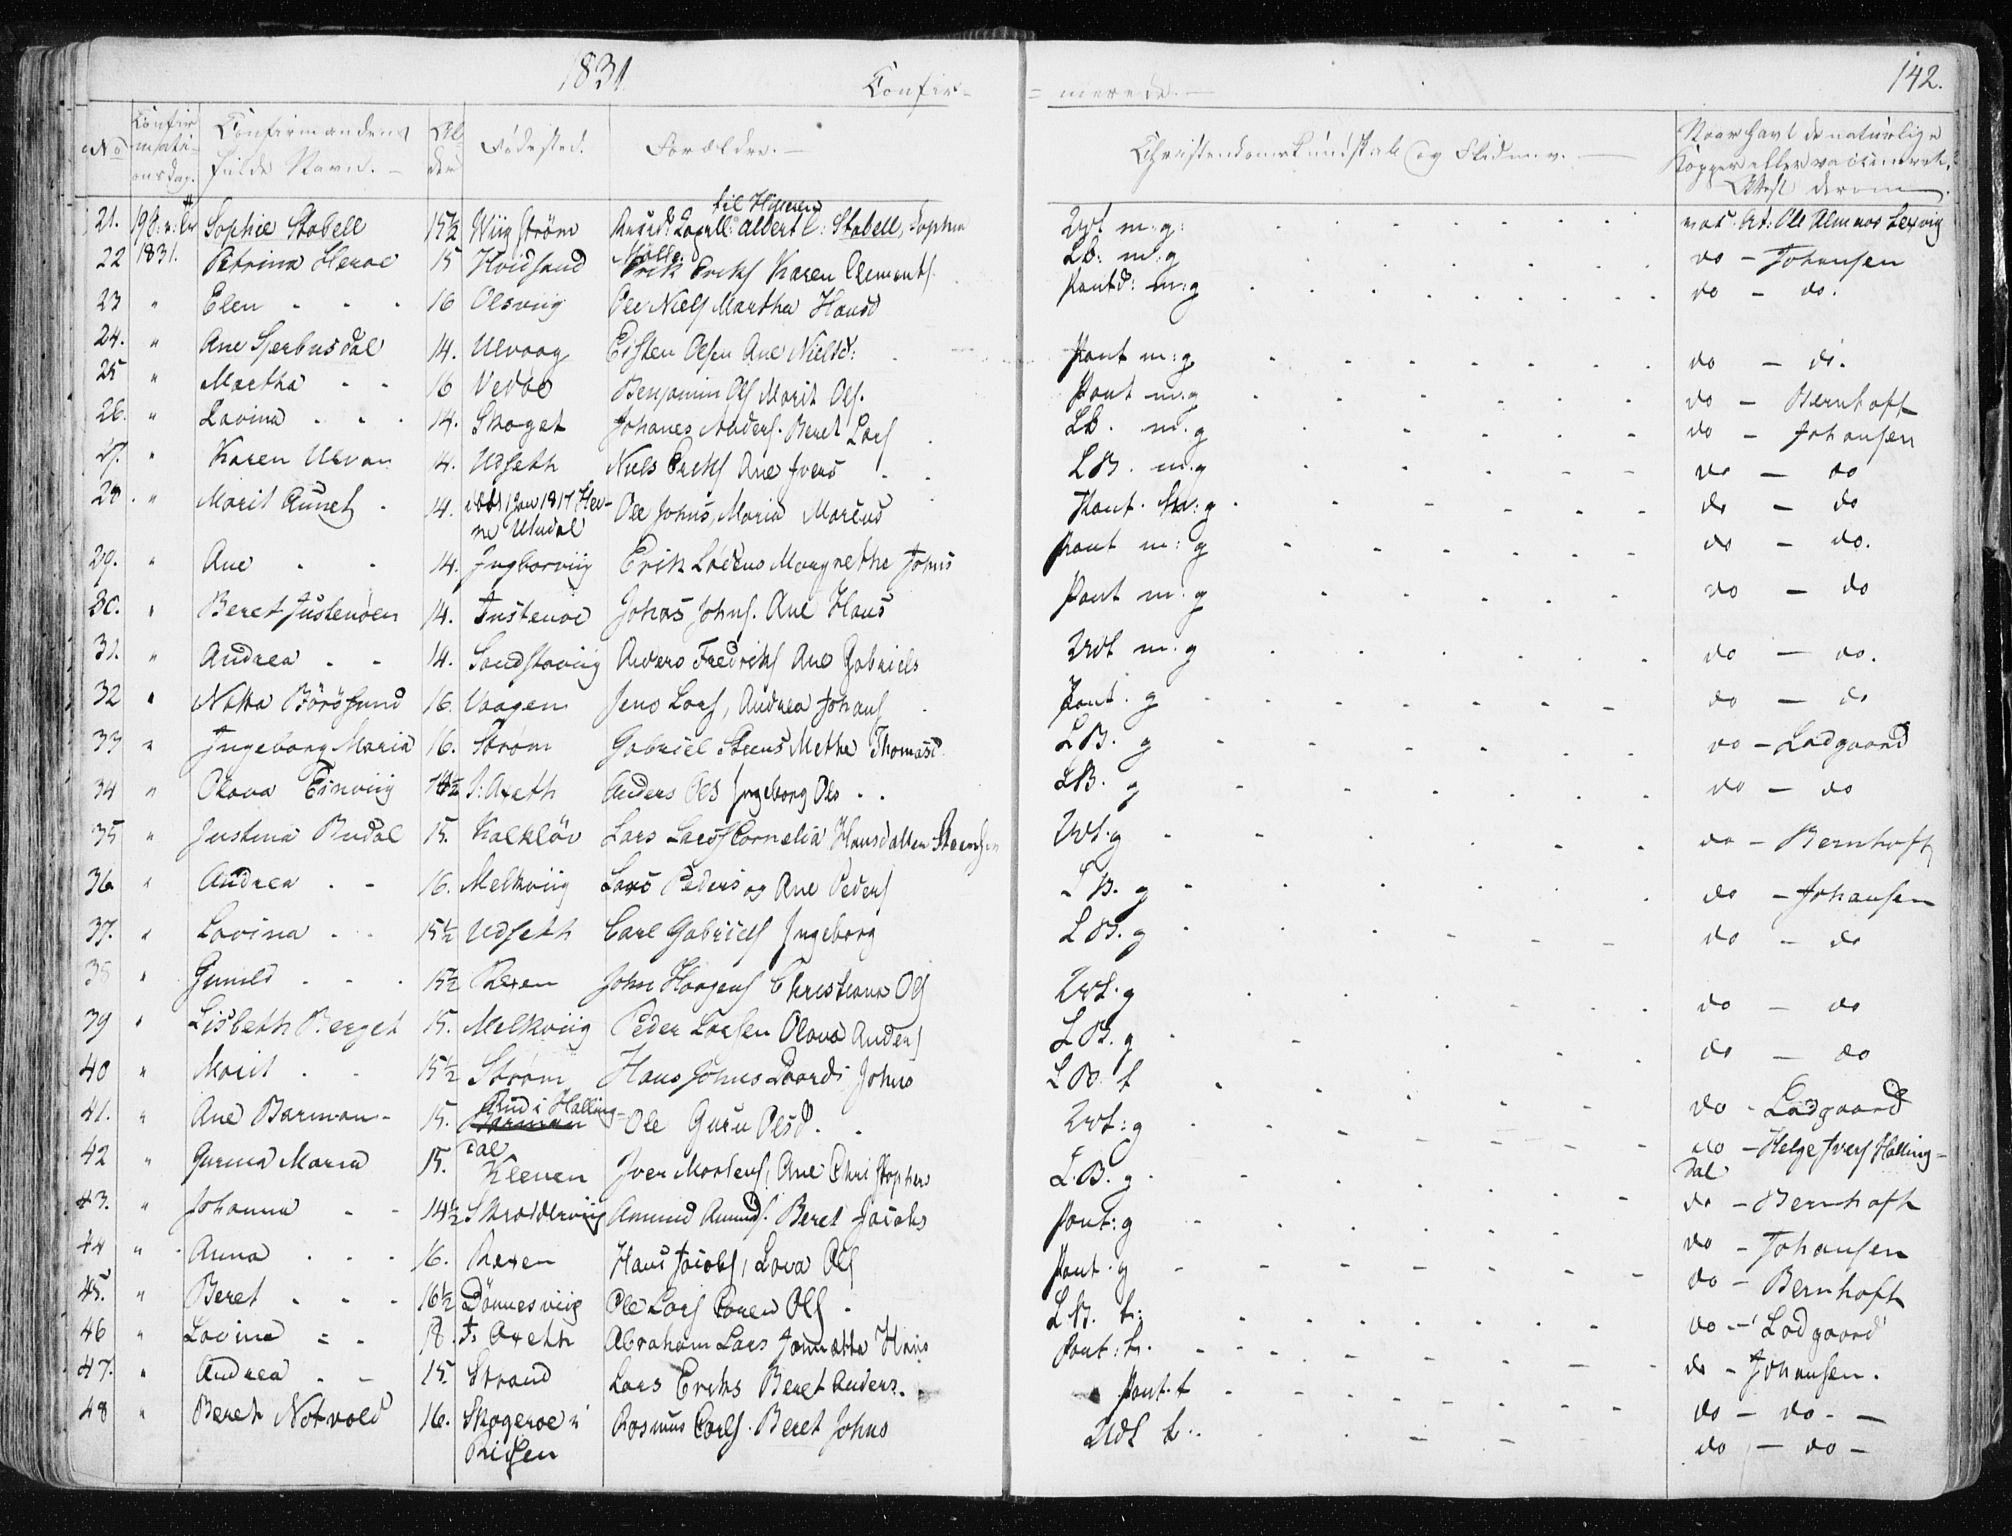 1831.
Confir-
= merede. -
142.
No
Confirmationsdag.
Confirmandens fulde Navn. -
Alder
Fødested.
Forældre. -
Christendomskundskab og Flid m. v. -
Naar havt de naturlige Kopper eller vaccineret. Attest derom.
til Hitteren
21. Sophie Stabell 15½ Wiigstrøm Albert C: Stabell, Sophia Møller Udt m: g: vac. At: Ole Alm
22 1831. Petrina Heroe 15 Kvidsand Erik Eriks Karen Clements. LB: m: g do - Johansen
23 " Elen - - - 16 Olsviig Ole Niels Martha Hansd Pout d: m: g do - do.
24. " Ane Sjerbusdal 14. Ulvaag Eisten Olsen Ane Nielsd: Pout m: g do - do.
25 " Martha - - 16 Vedøe Benjamin Ols Marit Ols. Pout m: g do - Bernhoft
26. " Lovina - - 14. Skaget Johanes Anders. Beret Lars LB. m. g do - Johansen
27. " Karen Ulvan 14. Udseth Niels Eriks Ane Ivers LB. m. g do - do
28. " Marit Aunet 14. 1817 Hevne Ole Johns, Maria Marcus Pout. m: g do - do
29. " Ane - - 14. Ingborviig Erik Lødens Margrethe Johns Pout m: g do - do.
30. " Beret Justenøen 14. Justenoe Johns Johns. Ane Hans Pout m: g do - do
31. " Andrea - - 14. Sandstaviig Anders Fredriks Ane Gabriels Udt m: g do - do.
32 " Netta Börösund 16. Vaagen Jens Lars, Andrea Johans Pout. g do - do
33 " Ingeborg Maria 16. Strøm Gabriel Steens Methe Thomasd LB. g do - Ladgaard
34 " Olava Eineviig 14½ I: Axeth Anders Ols Ingeborg Ols. LB. g do - do
35 " Justina Budal 15. Kalkløv Lars Lars Cornelia Hansdatter Udt: g do - Bernhoft
36 " Andrea - - 16. Melkviig Lars Peders og Ane Peders LB. g do - Johansen
37. " Lovina - - 15½ Udseth Carl Gabriels Ingeborg LB. g do - do
38 " Gunild - - - 15½ Rexen John Haagens Christiana Ols Udt. g do - do
39 " Lisbeth Berget 15. Melkviig Peder Larsen Olava Anders LB. g do - do
40 " Marit - - 15½ Strøm Hans Johns Johns LB. t do - Ladgaard
41. " Ane Barman - 15. Rud i Hallingdal Ole Guru Olsd. Udt: g do - Helge Ivers Hallingdal
42 " Gurina Maria 15. Kleven Iver Mortens, Ane Christophers L. B. g do - Bernhoft
43. " Johanna - - 14½ Skraldeviig Amund Amunds. Beret Jacobs Pout: g do - Johansen
44 " Anna - - - 16. Rexen Hans Jacobs, Lova Ols Pout. g do - Bernhoft
45. " Beret - - - 16½ Dönnesviig Ole Lars Caren Ols. LB. t: do - Ladgaard
46 " Lovina = - 18. I: Axeth Abraham Lars Jonetta Hans Pout: t. do - Johansen.
47. " Andrea - - 15. Strand Lars Eriks Beret Anders. Pout. t do - do. -
48 " Beret Notvold 16. Skageroe i Rissen Rasmus Carls. Beret Johns Udt t. do - do -